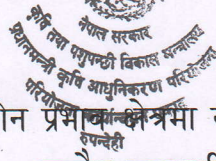 नेपाल सरकार
कृषि तथा पशुपन्छी विकास मन्त्रालय
प्रधानमन्त्री कृषि आधुनिकरण परियोजना
रुपन्देही
न प्रभाव क्षेत्रमा